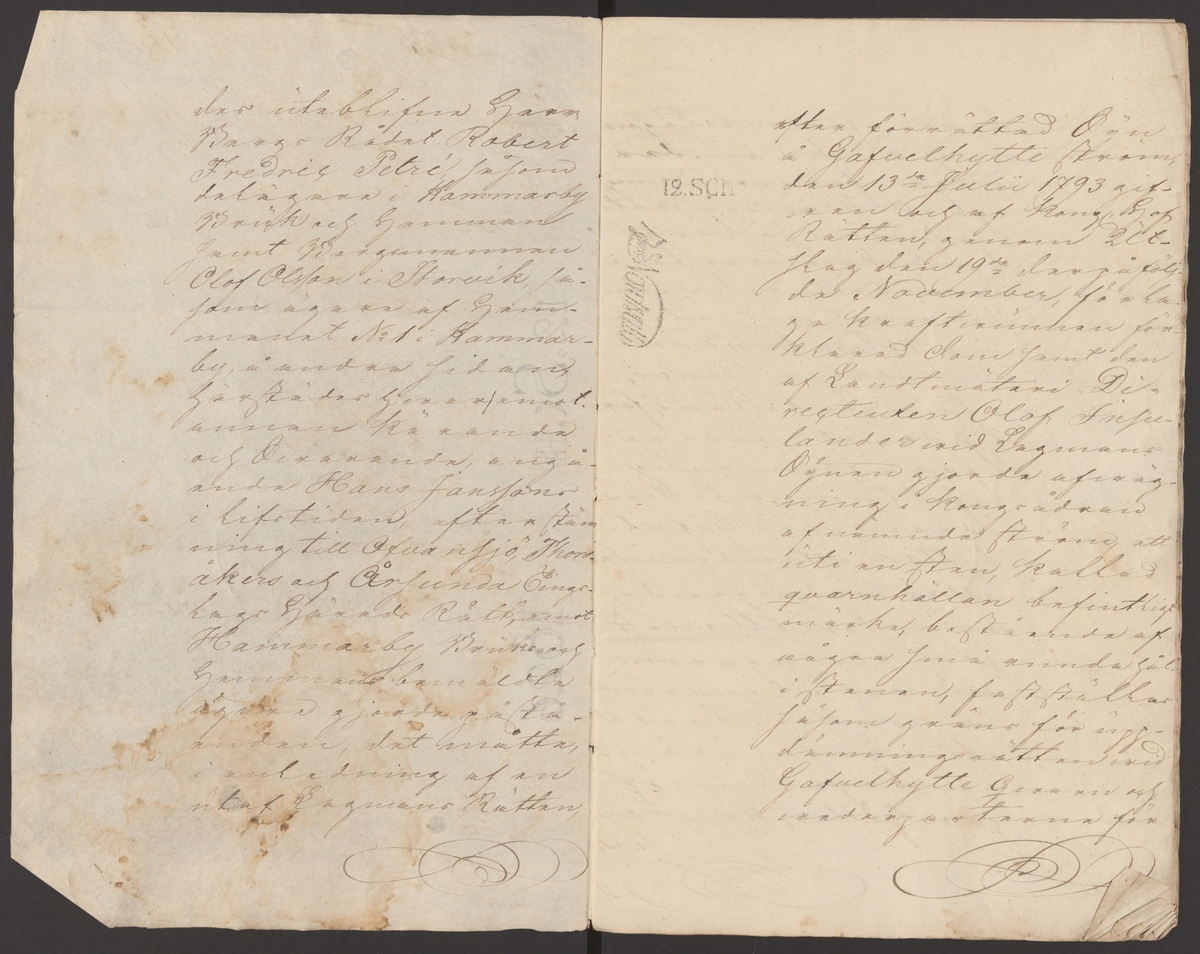 des uteblifne Herr
Bergs Rådet Robert
Fredric Petré, såsom
delägare i Hammarby
Bruk och Hemman
samt Bergsmannen
Olof Olsson i Storvik, så-
som ägare af Hem-
manet No 1 i Hammar-
by, å andra sidan,
härstädes hvar emot
annan kärande
och Svarande, angå-
ende Hans Janssons
i lifstiden, efter stäm
ning till Ofvansjö, Thors-
åkers och Årsunda Tings-
lags Härads Rätt, emot
Hammarby Bruks och
Hemmans bemäldte
ägare gjorde påstå-
enden, det måtte,
i anledning af en
utaf Lagmans Rätten,
efter förrättad Syn
å Gafvelhytte ström,
den 13de Julii 1793 gif-
ven och af Kongl. Hof
Rätten, genom Ut-
slag den 19de derpåföl-
de November, för la-
ga kraftvunnen för-
klarad Dom samt den
af Landtmäteri Di-
recteuren Olof Insu-
lander vid Lagmans
Synen gjorde afväg-
ning i Kongsådran
af nämnde ström, att
uti en sten kallad
qvarnhällan befintligt
märke, bestående af
några små runda hål
i stenen, fastställas
såsom gräns för upp-
dämningsrätten vid
Gafvelhytte Qvarn och
vederparterne för
12.SCH